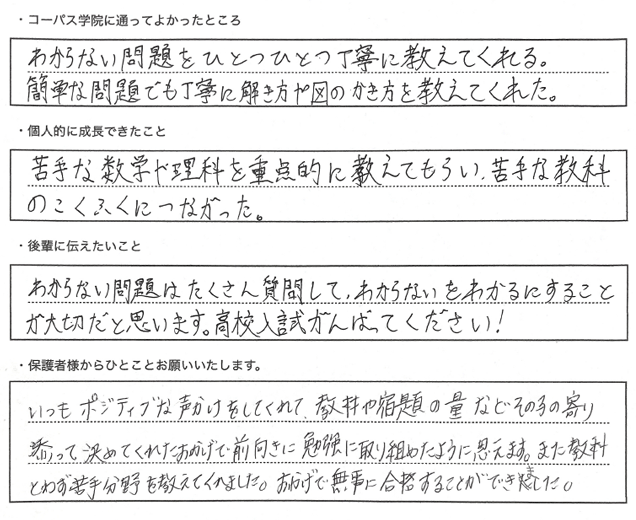 ・コーパス学院に通ってよかったところ
わからない問題をひとつひとつ丁寧に教えてくれる。
簡単な問題でも丁寧に解き方や図のかき方を教えてくれた。
・個人的に成長できたこと
苦手な数学や理科を重点的に教えてもらい、苦手な教科
のこくふくにつながった。
・後輩に伝えたいこと
わからない問題はたくさん質問して、わからないをわかるにすること
が大切だと思います。高校入試がんばってください！
・保護者様からひとことお願いいたします。
いつもポジティブな声かけをしてくれて、教科や宿題の量などその子の寄り
添って決めてくれたおかげで前向きに勉強に取り組めたように思えます。また教科
とわず苦手分野を教えてくれました。おかげで無事に合格することができました。